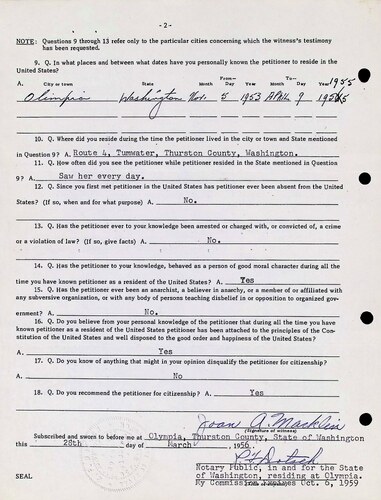 - 2 -
NOTE: Questions 9 through 13 refer only to the particular cities concerning which the witness's testimony
has been requested.
9. Q. In what places and between what dates have you personally known the petitioner to reside in the
United States?
From— To— 1955
A. City or town State Month Day Year Month Day Year
Olimpia Washington Nov. 5 1953 April 9 1955
10. Q. Where did you reside during the time the petitioner lived in the city or town and State mentioned
in Question 9? A. Route 4, Tumwater, Thurston County, Washington.
11. Q. How often did you see the petitioner while petitioner resided in the State mentioned in Question
9? A. Saw her every day.
12. Q. Since you first met petitioner in the United States has petitioner ever been absent from the United
States? (If so, when and for what purpose) A. No.
13. Q. Has the petitioner ever to your knowledge been arrested or charged with, or convicted of, a crime
or a violation of law? (If so, give facts) A. No.
14. Q. Has the petitioner to your knowledge, behaved as a person of good moral character during all the
time you have known petitioner as a resident of the United States? A. Yes
15. Q. Has the petitioner ever been an anarchist, a believer in anarchy, or a member of or affiliated with
any subversive organization, or with any body of persons teaching disbelief in or opposition to organized gov-
ernment? A. No.
16. Q. Do you believe from your personal knowledge of the petitioner that during all the time you have
known petitioner as a resident of the United States petitioner has been attached to the principles of the Con-
stitution of the United States and well disposed to the good order and happiness of the United States?
A. Yes
17. Q. Do you know of anything that might in your opinion disqualify the petitioner for citizenship?
A. No
18. Q. Do you recommend the petitioner for citizenship? A. Yes
Joan A. Macklin
(Signature of witness)
Subscribed and sworn to before me at Olympia, Thurston County, State of Washington
this 28th day of March 1956.
Notary Public, in and for the State
of Washington, residing at Olympia.
SEAL My Commission Expires Oct. 6, 1959